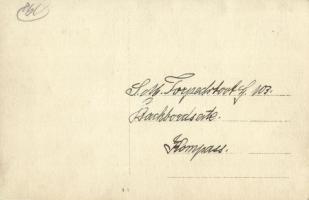 860
S.M. Torpedoboot G. 107.
Backbordseite.
Kompass.